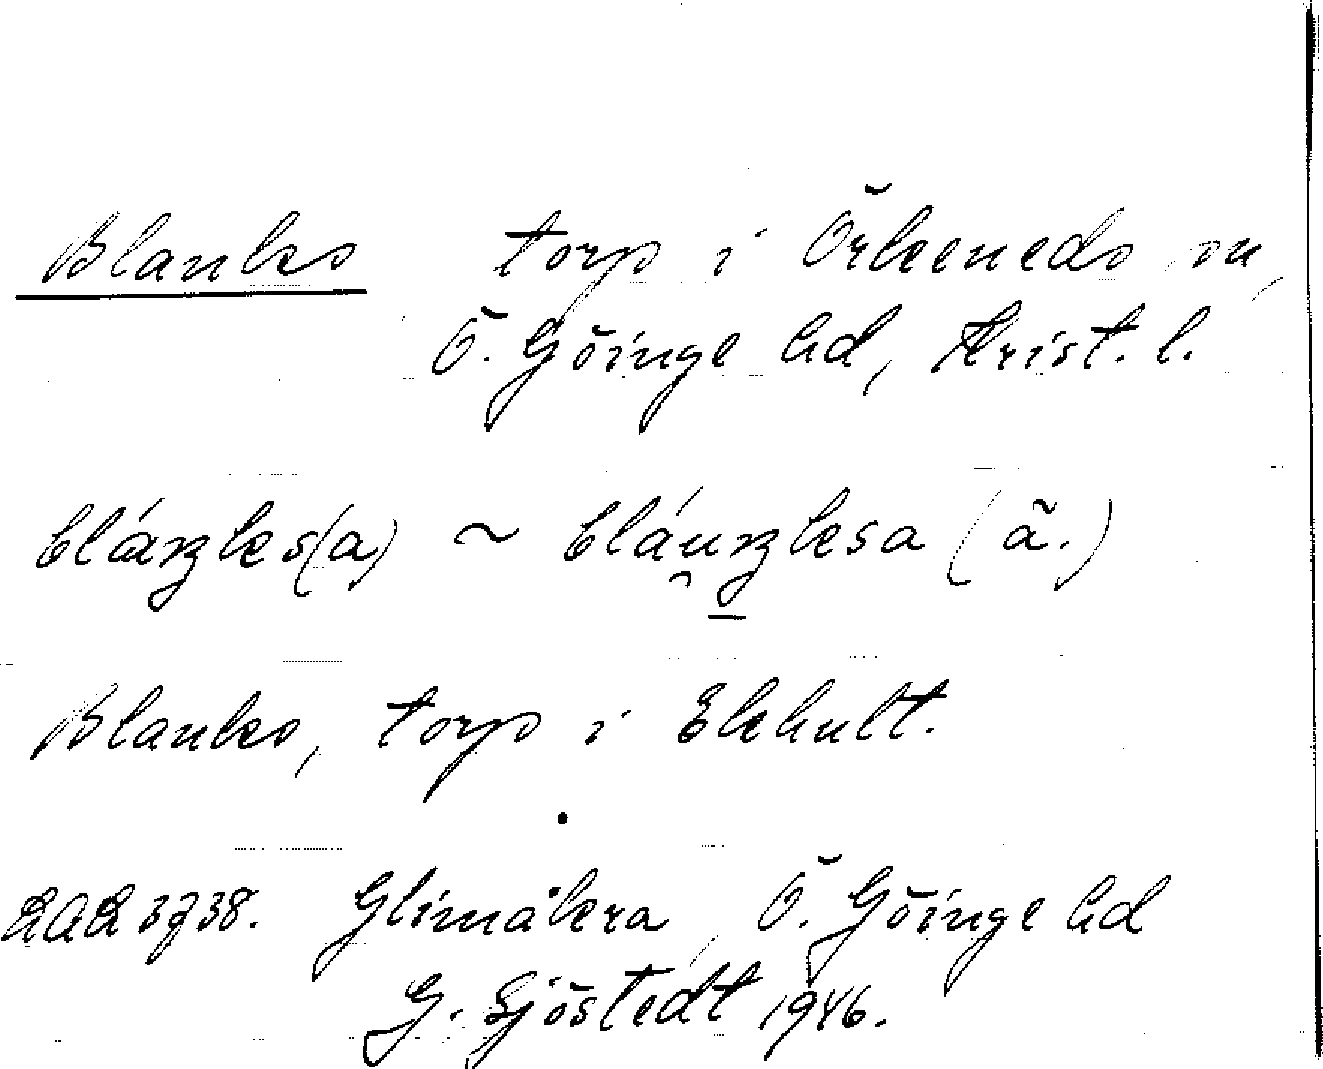 Blanks torp i Örkeneds sn,
Ö. Göinge hd, Krist. l.
bláŋks(a) ~ bláu̯ŋksa (ä.)
Blanks, torp i Ekhult.
LAL 3738. Glimåkra, Ö. Göinge hd
G. Sjöstedt 1946.